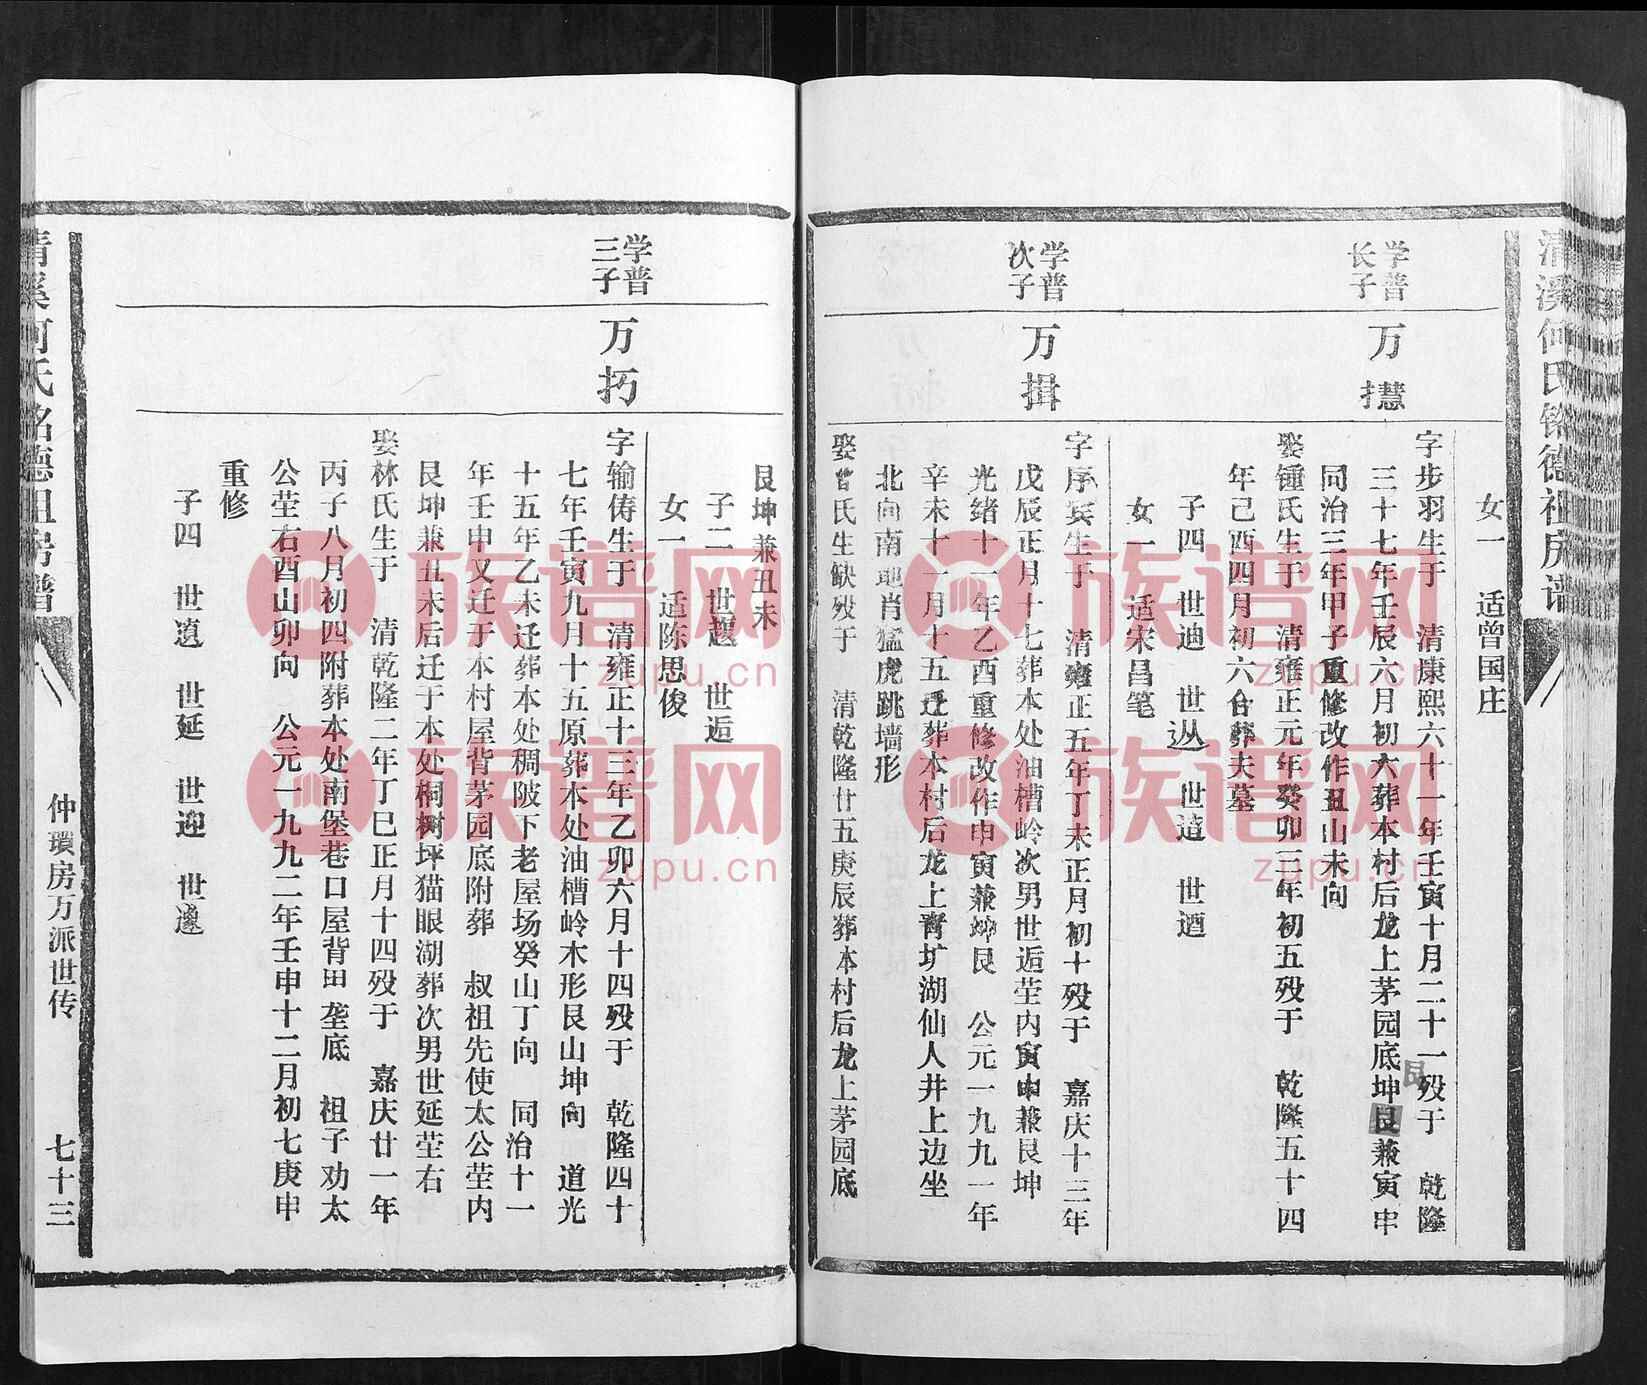 清溪何氏铭德祖房谱
女一 适曾国庄
学普
长子
万㨹
字步羽生于 清康熙六十一年壬寅十月二十一殁于 乾隆
三十七年壬辰六月初六葬本村后龙上茅园底坤艮兼寅申
艮
同治三年甲子重修改作丑山未向
娶锺氏生于 清雍正元年癸卯三年初五殁于 乾隆五十四
年己酉四月初六合葬夫墓
子四 世迪 世 世 世迺
女一 适宋昌笔
学普
次子
万揖
字序宾生于 清雍正五年丁未正月初十殁于 嘉庆十三年
戊辰正月十七葬本处油槽岭次男世逅茔内寅申兼艮坤
光绪十一年乙酉重修改作申寅兼坤艮 公元一九九一年
辛未十一月十五迁葬本村后龙上膏圹湖仙人井上边坐
北向南地肖猛虎跳墙形
娶曾氏生缺殁于 清乾隆廿五庚辰葬本村后龙上茅园底
艮坤兼丑未
子二 世趯 世逅
女一 适陈思俊
学普
三子
万㧏
字输俦生于 清雍正十三年乙卯六月十四殁于 乾隆四十
七年壬寅九月十五原葬本处油槽岭木形艮山坤向 道光
十五年乙未迁葬本处稠陂下老屋场癸山丁向 同治十一
年壬申又迁于本村屋背茅园底附葬 叔祖先使太公茔内
艮坤兼丑未后迁于本处桐树坪猫眼湖葬次男世延茔右
娶林氏生于 清乾隆二年丁巳正月十四殁于 嘉庆廿一年
丙子八月初四附葬本处南堡巷口屋背田垄底 祖子劝太
公茔右酉山卯向 公元一九九二年壬申十二月初七庚申
重修
子四 世 世延 世迎 世邈
清溪何氏铭德祖房谱
仲瓒房万派世传
七十三
族谱网
zupu.cn
族谱网
zupu.cn
族谱网
zupu.cn
族谱网
zupu.cn